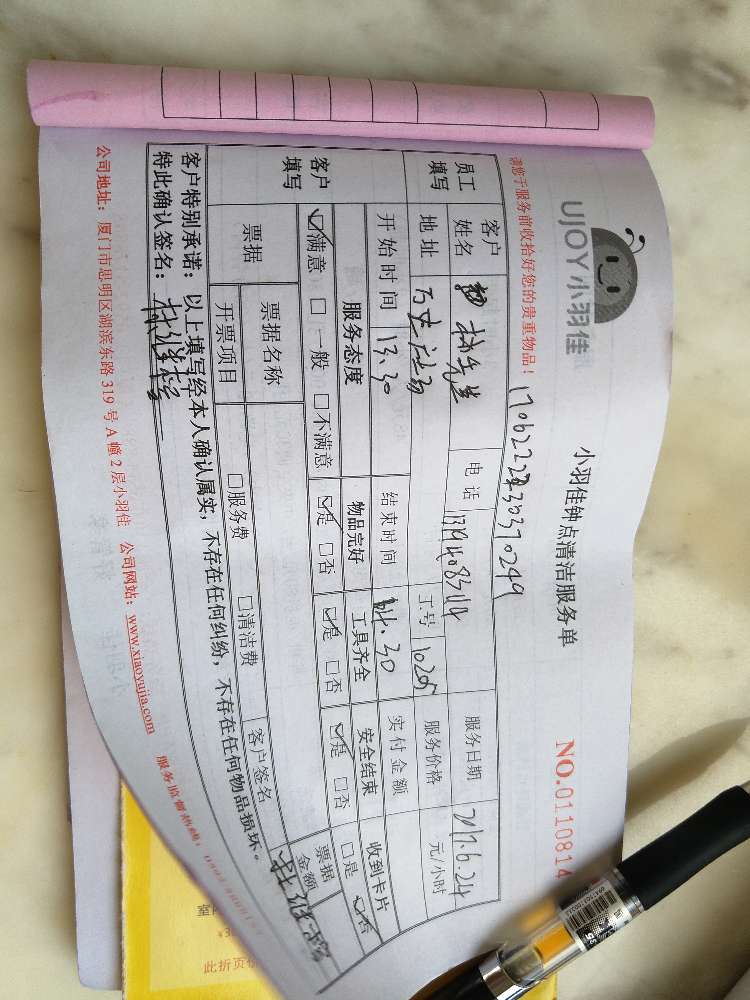 UJOY小羽佳
小羽佳钟点清洁服务单
NO.0110814
请您于服务前收拾好您的贵重物品！
员工填写
客户姓名
电话
服务日期 2017.6.24
地址
工号 1025
服务价格 元/小时
开始时间 13.30
结束时间 14.30
实付金额
客户填写
服务态度
物品完好
工具齐全
安全结束
收到卡片
☑满意 □一般 □不满意
☑是 □否
☑是 □否
☑是 □否
□是 ☑否
票据
票据名称
□服务费 □清洁费
客户签名
票据金额
开票项目
客户特别承诺：以上填写经本人确认属实，不存在任何纠纷，不存在任何物品损坏。
特此确认签名：
公司地址：厦门市思明区湖滨东路319号A幢2层小羽佳 公司网站：www.xiaoyujia.com
此折页